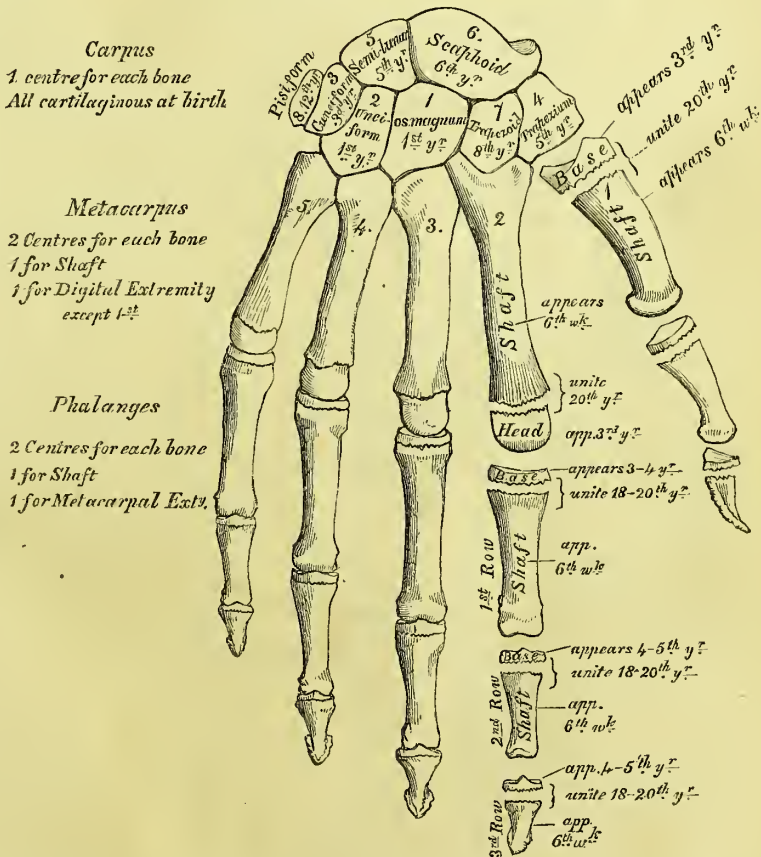 Carpus
1. centre for each bone
All cartilaginous at birth
Metacarpus
2 Centres for each bone
1 for Shaft
1 for Digital Extremity
except 1st
Phalanges
2 Centres for each bone
1 for Shaft
1 for Metacarpal Exty.
Pisiform
8. 12th yr
3
Cuneiform
3rd yr
5
Semi-lunar
5th yr
6.
Scaphoid
6th yr
2
Unci-
form
1st yr
1
os. magnum
1st yr
7
Trapezoid
8th yr
4
Trapezium
5th yr
appears 3rd yr
unite 20th yr
appears 6th wk
Base
1
Shaft
5.
4.
3.
2
Shaft
appears
6th wk
unite
20th yr
Head
app. 3rd yr
Base
appears 3-4 yr
unite 18-20th yr
1st Row
Shaft
app.
6th wk
Base
appears 4-5th yr
unite 18-20th yr
2nd Row
Shaft
app.
6th wk
app. 4-5th yr
unite 18-20th yr
3rd Row
app.
6th wk